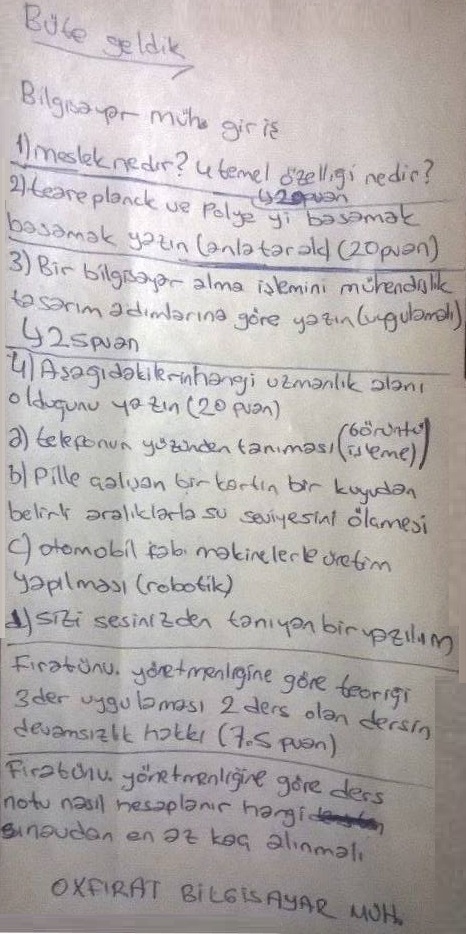 Büte geldik
Bilgisayar müh. giriş
1) meslek nedir? 4 temel özelliği nedir?
↳20puan
2) teare planck ve Polye yi basamak
basamak yazın (anlatarak) (20puan)
3) Bir bilgisayar alma işlemini mühendislik
tasarım adımlarına göre yazın (uygulamalı)
↳25puan
4) Aşağıdakilerin hangi uzmanlık alanı
olduğunu yazın (20 puan)
a) telefonun yüzünden tanıması (Görüntü işleme)
b) Pille çalışan bir kartın bir kuyudan
belirli aralıklarla su seviyesini ölçmesi
c) otomobil gibi makinelerle üretim
yapılması (robotik)
d) sizi sesinizden tanıyan bir yazılım
Fırat Ünv. yönetmenliğine göre teoriği
3 der uygulaması 2 ders olan dersin
devamsızlık hakkı (7.5 puan)
Fırat Ünv. yönetmenliğine göre ders
notu nasıl hesaplanır hangi
sınavdan en az kaç alınmalı
OXFIRAT BİLGİSAYAR MÜH.